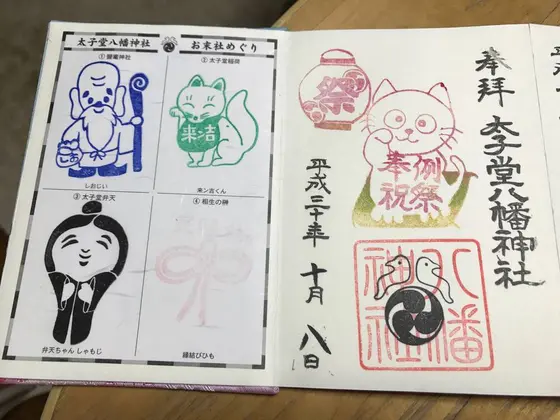 太子堂八幡神社 お末社めぐり
① 神社
しおじい
②太子堂稲荷
来ン吉
来ン吉くん
③太子堂弁天
弁天ちゃん しゃもじ
④相生の榊
縁結びひも
奉拝 太子堂八幡神社
祭
例祭
奉祝
八幡
神社
平成三十年 十月 八日